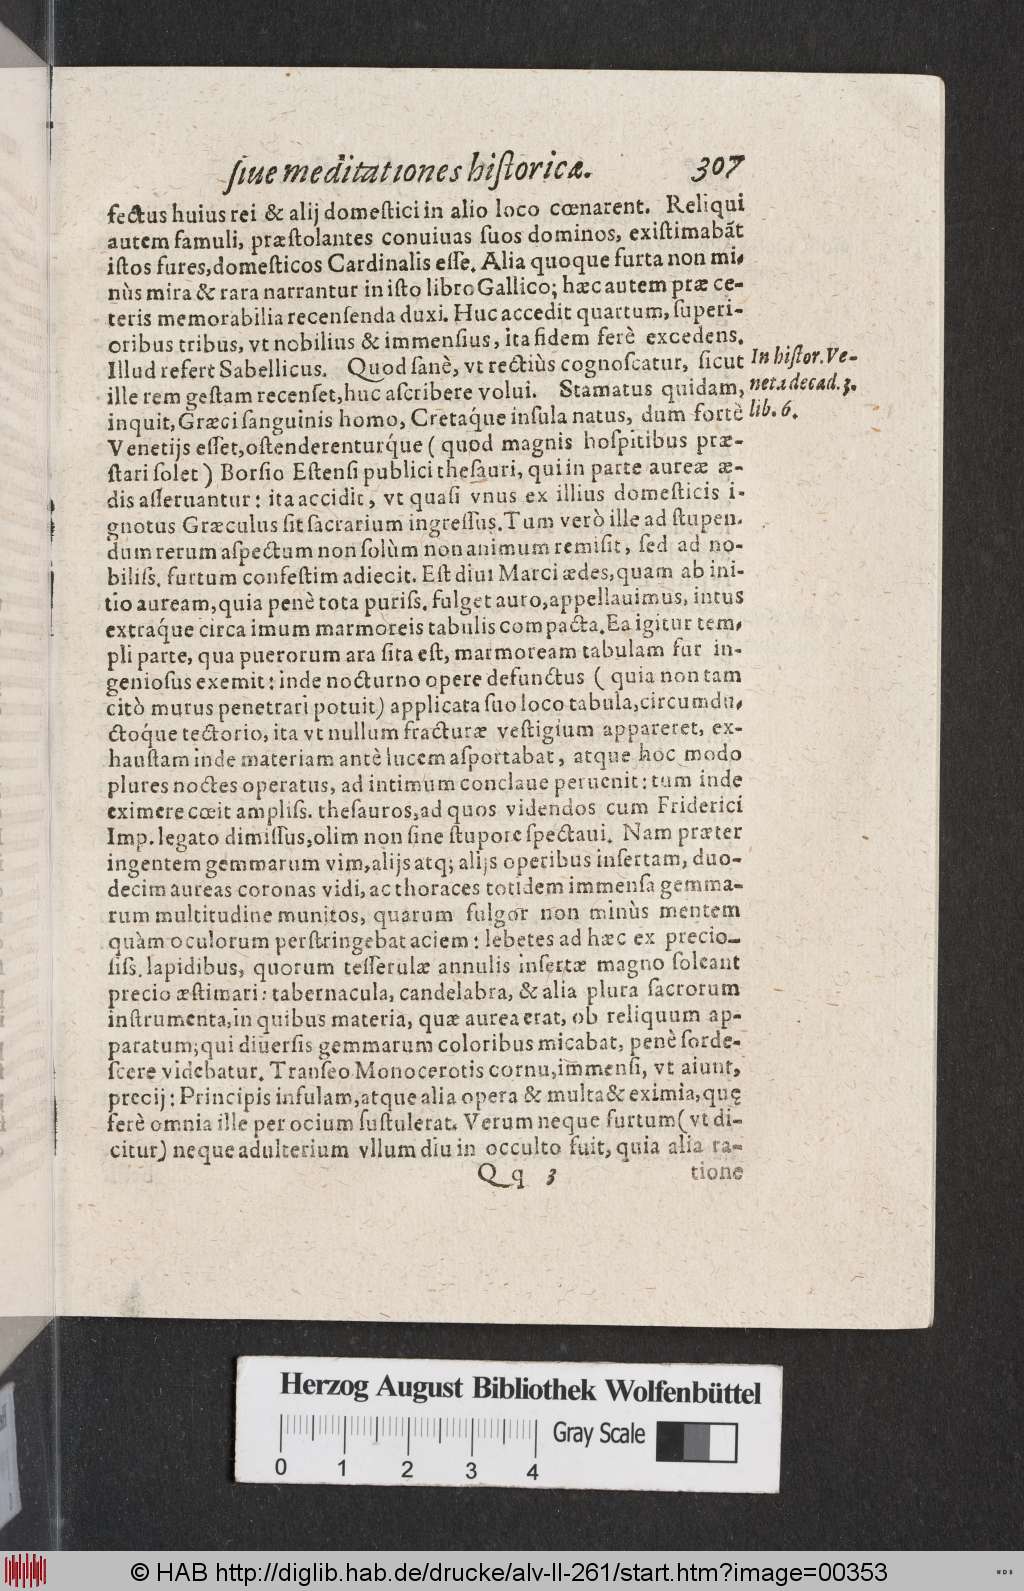 ſiue meditationes hiſtoricæ. 307
fectus huius rei & alij domeſtici in alio loco cœnarent. Reliqui
autem famuli, præſtolantes conuiuas ſuos dominos, exiſtimabãt
iſtos fures, domeſticos Cardinalis eſſe. Alia quoque furta non mi-
nùs mira & rara narrantur in iſto libro Gallico; hæc autem præ ce-
teris memorabilia recenſenda duxi. Huc accedit quartum, ſuperi-
oribus tribus, vt nobilius & immenſius, ita fidem ferè excedens.
Illud refert Sabellicus. Quod ſanè, vt rectiùs cognoſcatur, ſicut
ille rem geſtam recenſet, huc aſcribere volui. Stamatus quidam,
inquit, Græci ſanguinis homo, Cretáque inſula natus, dum fortè
Venetijs eſſet, oſtenderenturque (quod magnis hoſpitibus præ-
ſtari ſolet) Borſio Eſtenſi publici theſauri, qui in parte aureæ æ-
dis aſſeruantur: ita accidit, vt quaſi vnus ex illius domeſticis i-
gnotus Græculus ſit ſacrarium ingreſſus. Tum verò ille ad ſtupen-
dum rerum aſpectum non ſolùm non animum remiſit, ſed ad no-
biliſs. furtum confeſtim adiecit. Eſt diui Marci ædes, quam ab ini-
tio auream, quia penè tota puriſs. fulget auro, appellauimus, intus
extráque circa imum marmoreis tabulis compacta. Ea igitur tem-
pli parte, qua puerorum ara ſita eſt, marmoream tabulam fur in-
genioſus exemit: inde nocturno opere defunctus (quia non tam
citò murus penetrari potuit) applicata ſuo loco tabula, circumdu-
ctóque tectorio, ita vt nullum fracturæ veſtigium appareret, ex-
hauſtam inde materiam antè lucem aſportabat, atque hoc modo
plures noctes operatus, ad intimum conclaue peruenit: tum inde
eximere cœit ampliſs. theſauros, ad quos videndos cum Friderici
Imp. legato dimiſſus, olim non ſine ſtupore ſpectaui. Nam præter
ingentem gemmarum vim, alijs atq; alijs operibus inſertam, duo-
decim aureas coronas vidi, ac thoraces totidem immenſa gemma-
rum multitudine munitos, quarum fulgor non minùs mentem
quàm oculorum perſtringebat aciem: lebetes ad hæc ex precio-
ſiſs. lapidibus, quorum teſſerulæ annulis inſertæ magno ſoleant
precio æſtimari: tabernacula, candelabra, & alia plura ſacrorum
inſtrumenta, in quibus materia, quæ aurea erat, ob reliquum ap-
paratum, qui diuerſis gemmarum coloribus micabat, penè ſorde-
ſcere videbatur. Tranſeo Monocerotis cornu, immenſi, vt aiunt,
precij: Principis infulam, atque alia opera & multa & eximia, quę
ferè omnia ille per ocium ſuſtulerat. Verum neque furtum (vt di-
citur) neque adulterium vllum diu in occulto fuit, quia alia ra-
Qq 3 tione
In hiſtor. Ve-
neta decad. 3.
lib. 6.
Herzog August Bibliothek Wolfenbüttel
0 1 2 3 4 Gray Scale
© HAB http://diglib.hab.de/drucke/alv-ll-261/start.htm?image=00353